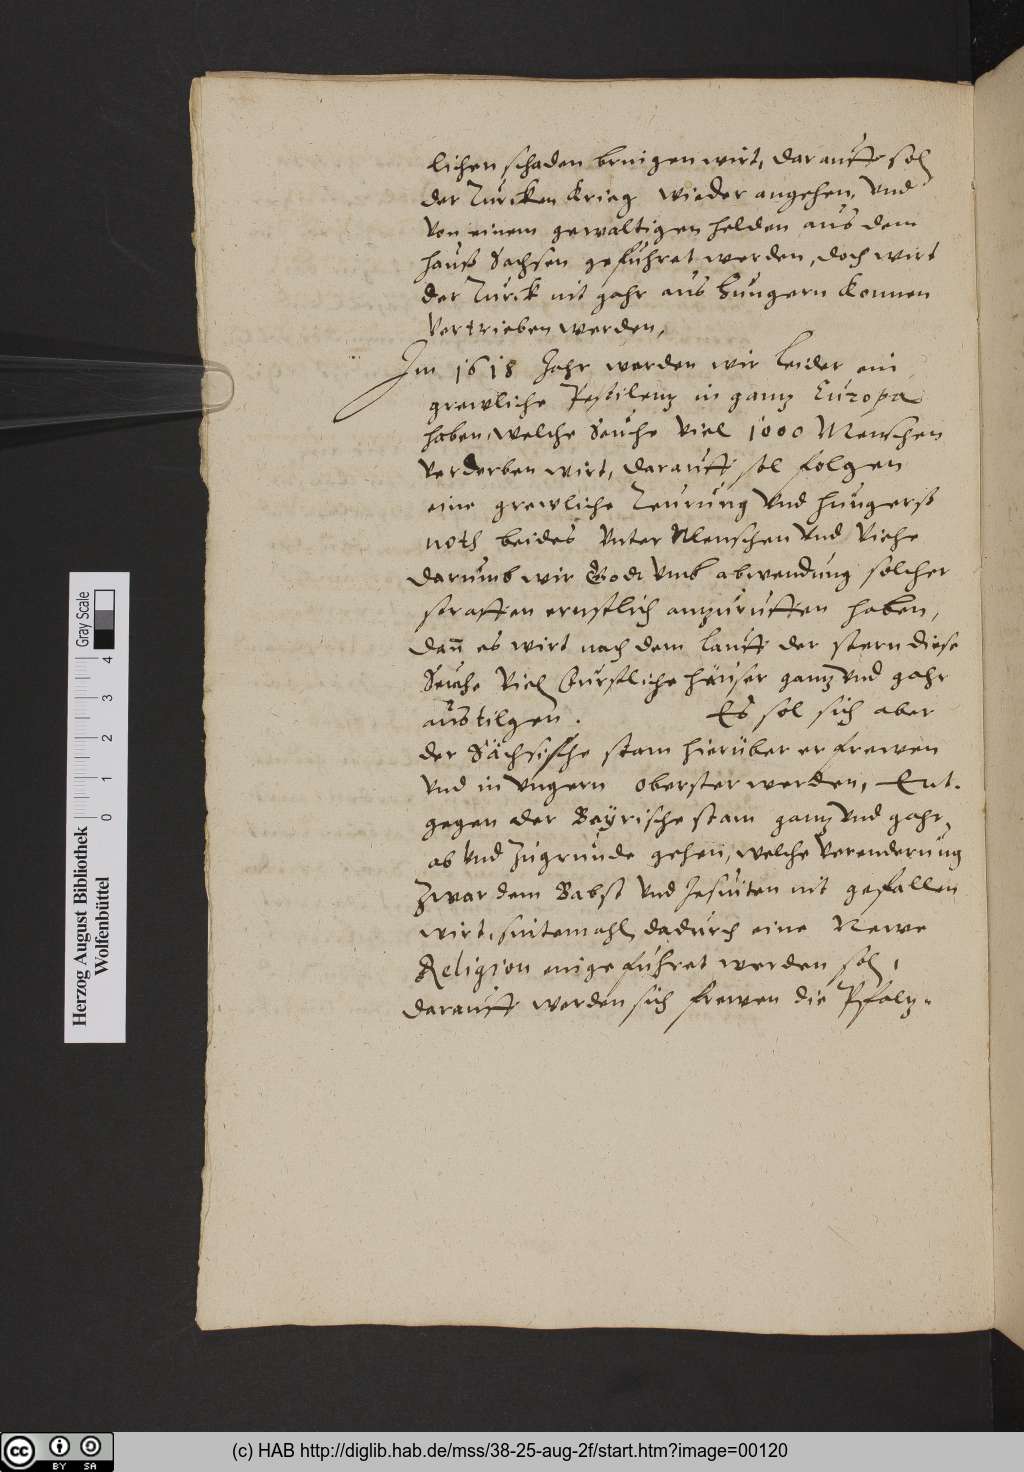 lichen schaden bringen wirt, darauff sol
der Turcken Krieg wieder angehen, vnd
von einem gewaltigen helden aus dem
hauß Sachsen gefuhret werden, doch wirt
der Turck nit gahr aus hungern konnen
vertrieben werden,
Im 1618 Jahr werden wir leider ein
grewliche Pestilentz in gantz Europa
haben, welche Seuche viel 1000 Menschen
verderben wirt, darauff sol folgen
eine grewliche Teurung vnd hungerß
noth beides vnter Menschen vnd Viehe
darumb wir Gott vmb abwendung solcher
straffen ernstlich anzuruffen haben,
dan̄ es wirt nach dem lauff der stern diese
Seuche viel furstliche häuser gantz vnd gahr
austilgen. Es sol sich aber
der Sächsische stam hierüber erfrewen
vnd in vngern oberster werden, Ent-
gegen der Beÿrische stam gantz vnd gahr
ab vnd zugrunde gehen, welche verenderung
zwar dem Babst vnd Jesuiten nit gefallen
wirt, sintemahl dadurch eine Newe
Religion eingefuhret werden sol,
darauff werden sich frewen die Pfaltz-
Herzog August Bibliothek
Wolfenbüttel
Gray Scale
0 1 2 3 4
cc BY SA
(c) HAB http://diglib.hab.de/mss/38-25-aug-2f/start.htm?image=00120